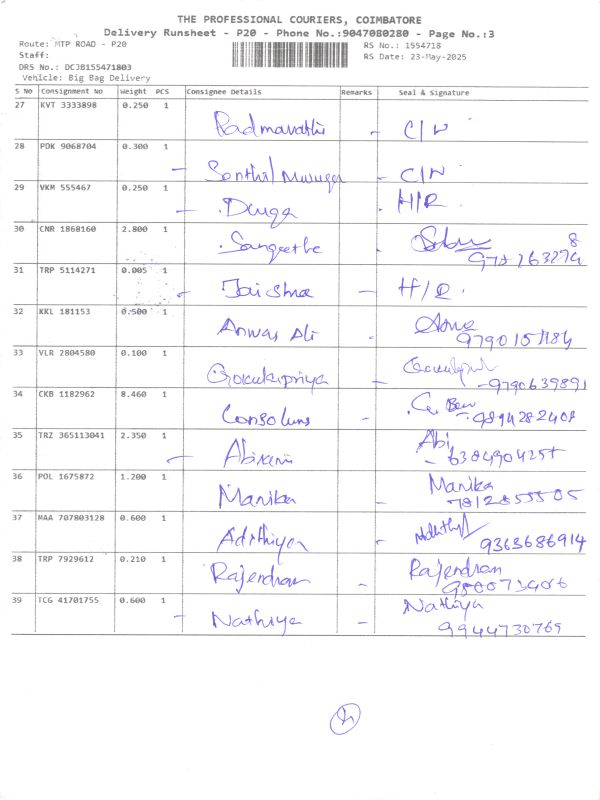 THE PROFESSIONAL COURIERS, COIMBATORE
Delivery Runsheet - P20 - Phone No.:9047080280 - Page No.:3
Route: MTP ROAD - P20
RS No.: 1554718
Staff:
RS Date: 23-May-2025
DRS No.: DCJB155471803
Vehicle: Big Bag Delivery
S No Consignment No Weight PCS Consignee Details Remarks Seal & Signature
27 KVT 3333898 0.250 1 Padmavathi - C/N
28 PDK 9068704 0.300 1 - Senthil Muruga - C/N
29 VKM 555467 0.250 1 - Durga - H/R
30 CNR 1868160 2.800 1 Sangeetha
31 TRP 5114271 0.005 1 - Jaishna - H/R
32 KKL 181153 0.500 1 Anwar Ali -
33 VLR 2804580 0.100 1 Gokulapriya - 9790639891
34 CKB 1182962 8.460 1 - 9894282408
35 TRZ 365113041 2.350 1 - Abirami Abi
36 POL 1675872 1.200 1 Manika - Manika
37 MAA 707803128 0.600 1 Adithiyan - 9363686914
38 TRP 7929612 0.210 1 Rajendran - Rajendran
39 TCG 41701755 0.600 1 - Nathiya - Nathiya
9944730769